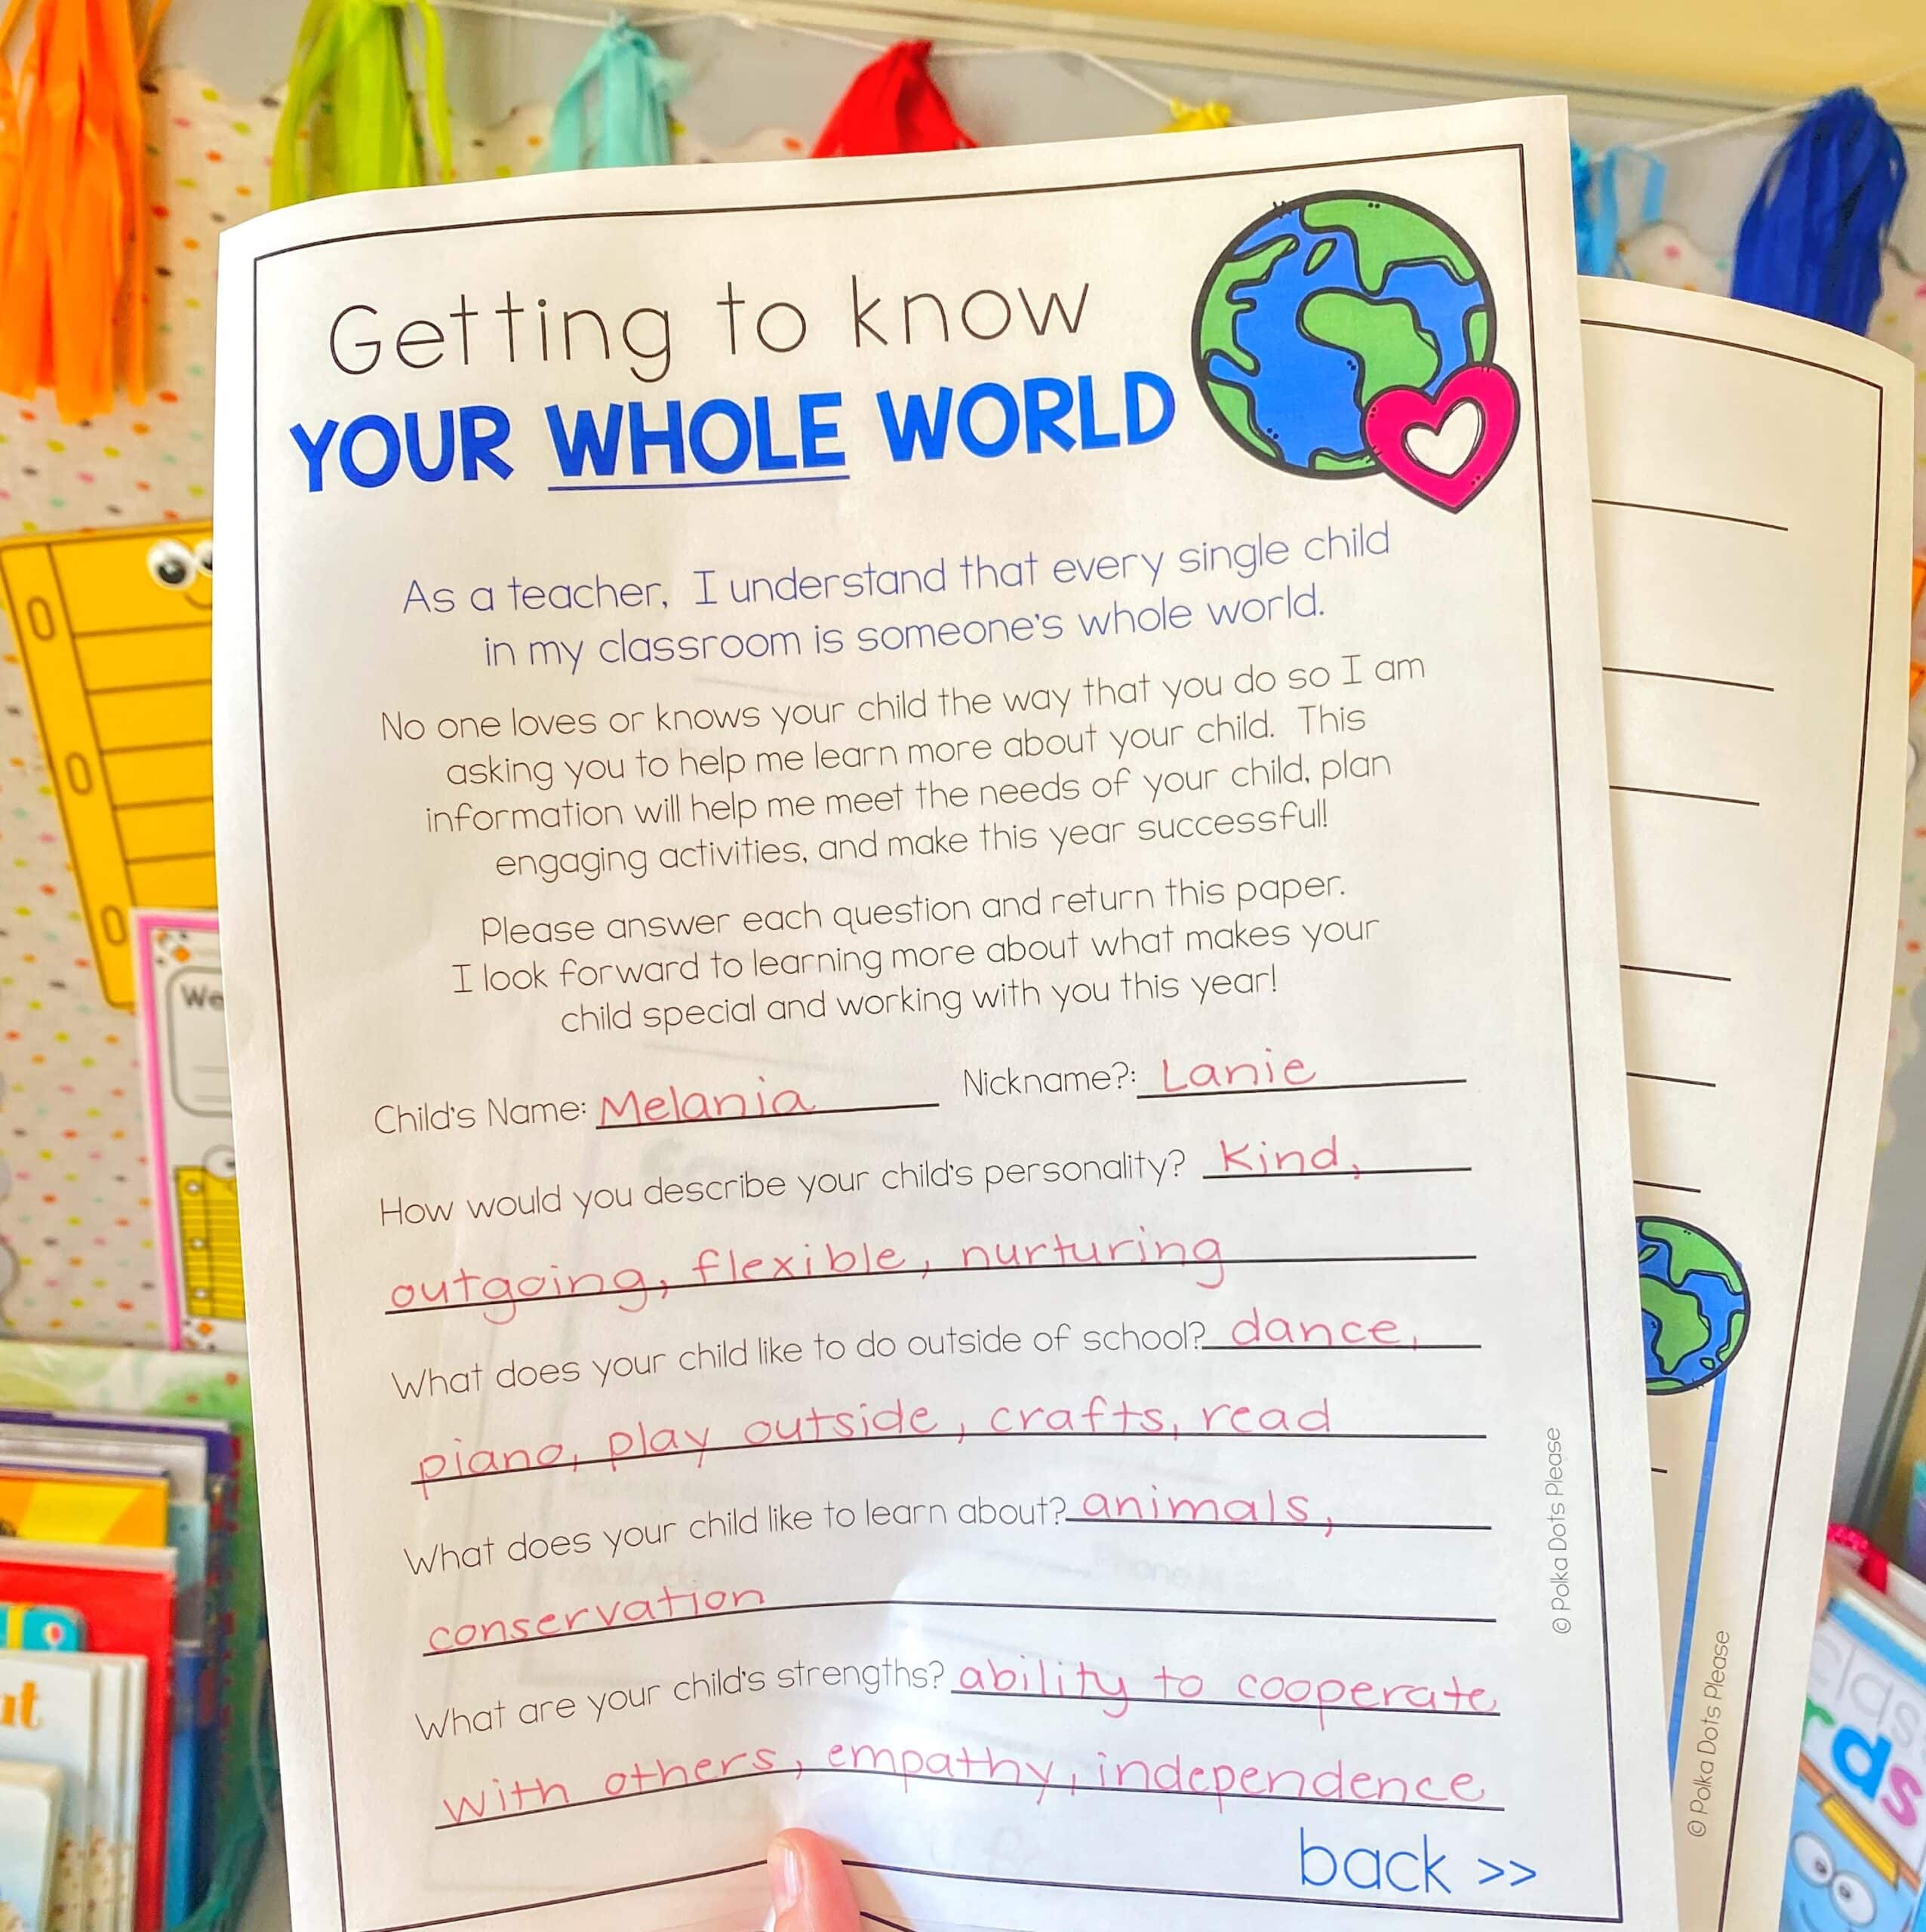 Getting to know
YOUR WHOLE WORLD
As a teacher, I understand that every single child
in my classroom is someone's whole world.
No one loves or knows your child the way that you do so I am
asking you to help me learn more about your child. This
information will help me meet the needs of your child, plan
engaging activities, and make this year successful!
Please answer each question and return this paper.
I look forward to learning more about what makes your
child special and working with you this year!
Child's Name: Melania Nickname?: Lanie
How would you describe your child's personality? Kind,
outgoing, flexible, nurturing
What does your child like to do outside of school? dance,
piano, play outside, crafts, read
What does your child like to learn about? animals,
conservation
What are your child's strengths? ability to cooperate
with others, empathy, independence
back >>
© Polka Dots Please
© Polka Dots Please
We